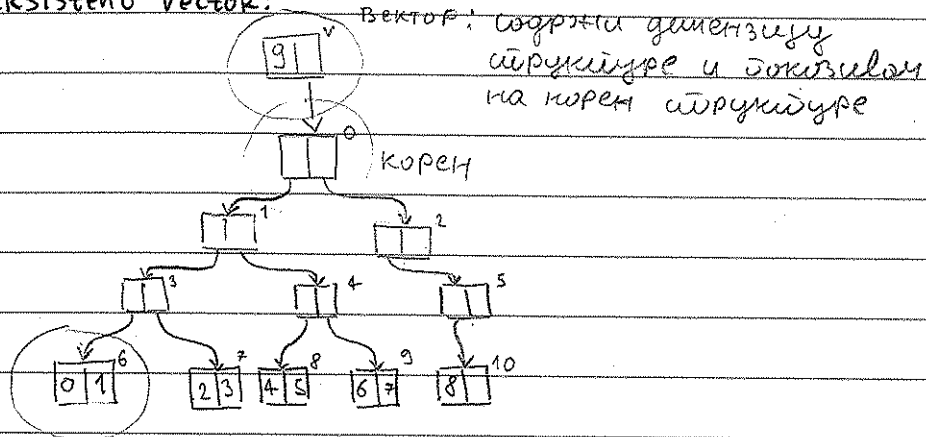 vector.
v
Вектор: содржи димензију
9
структуре и показивач
на корен структуре
0
корен
1
2
3
4
5
6
7
8
9
10
0 1
2 3
4 5
6 7
8